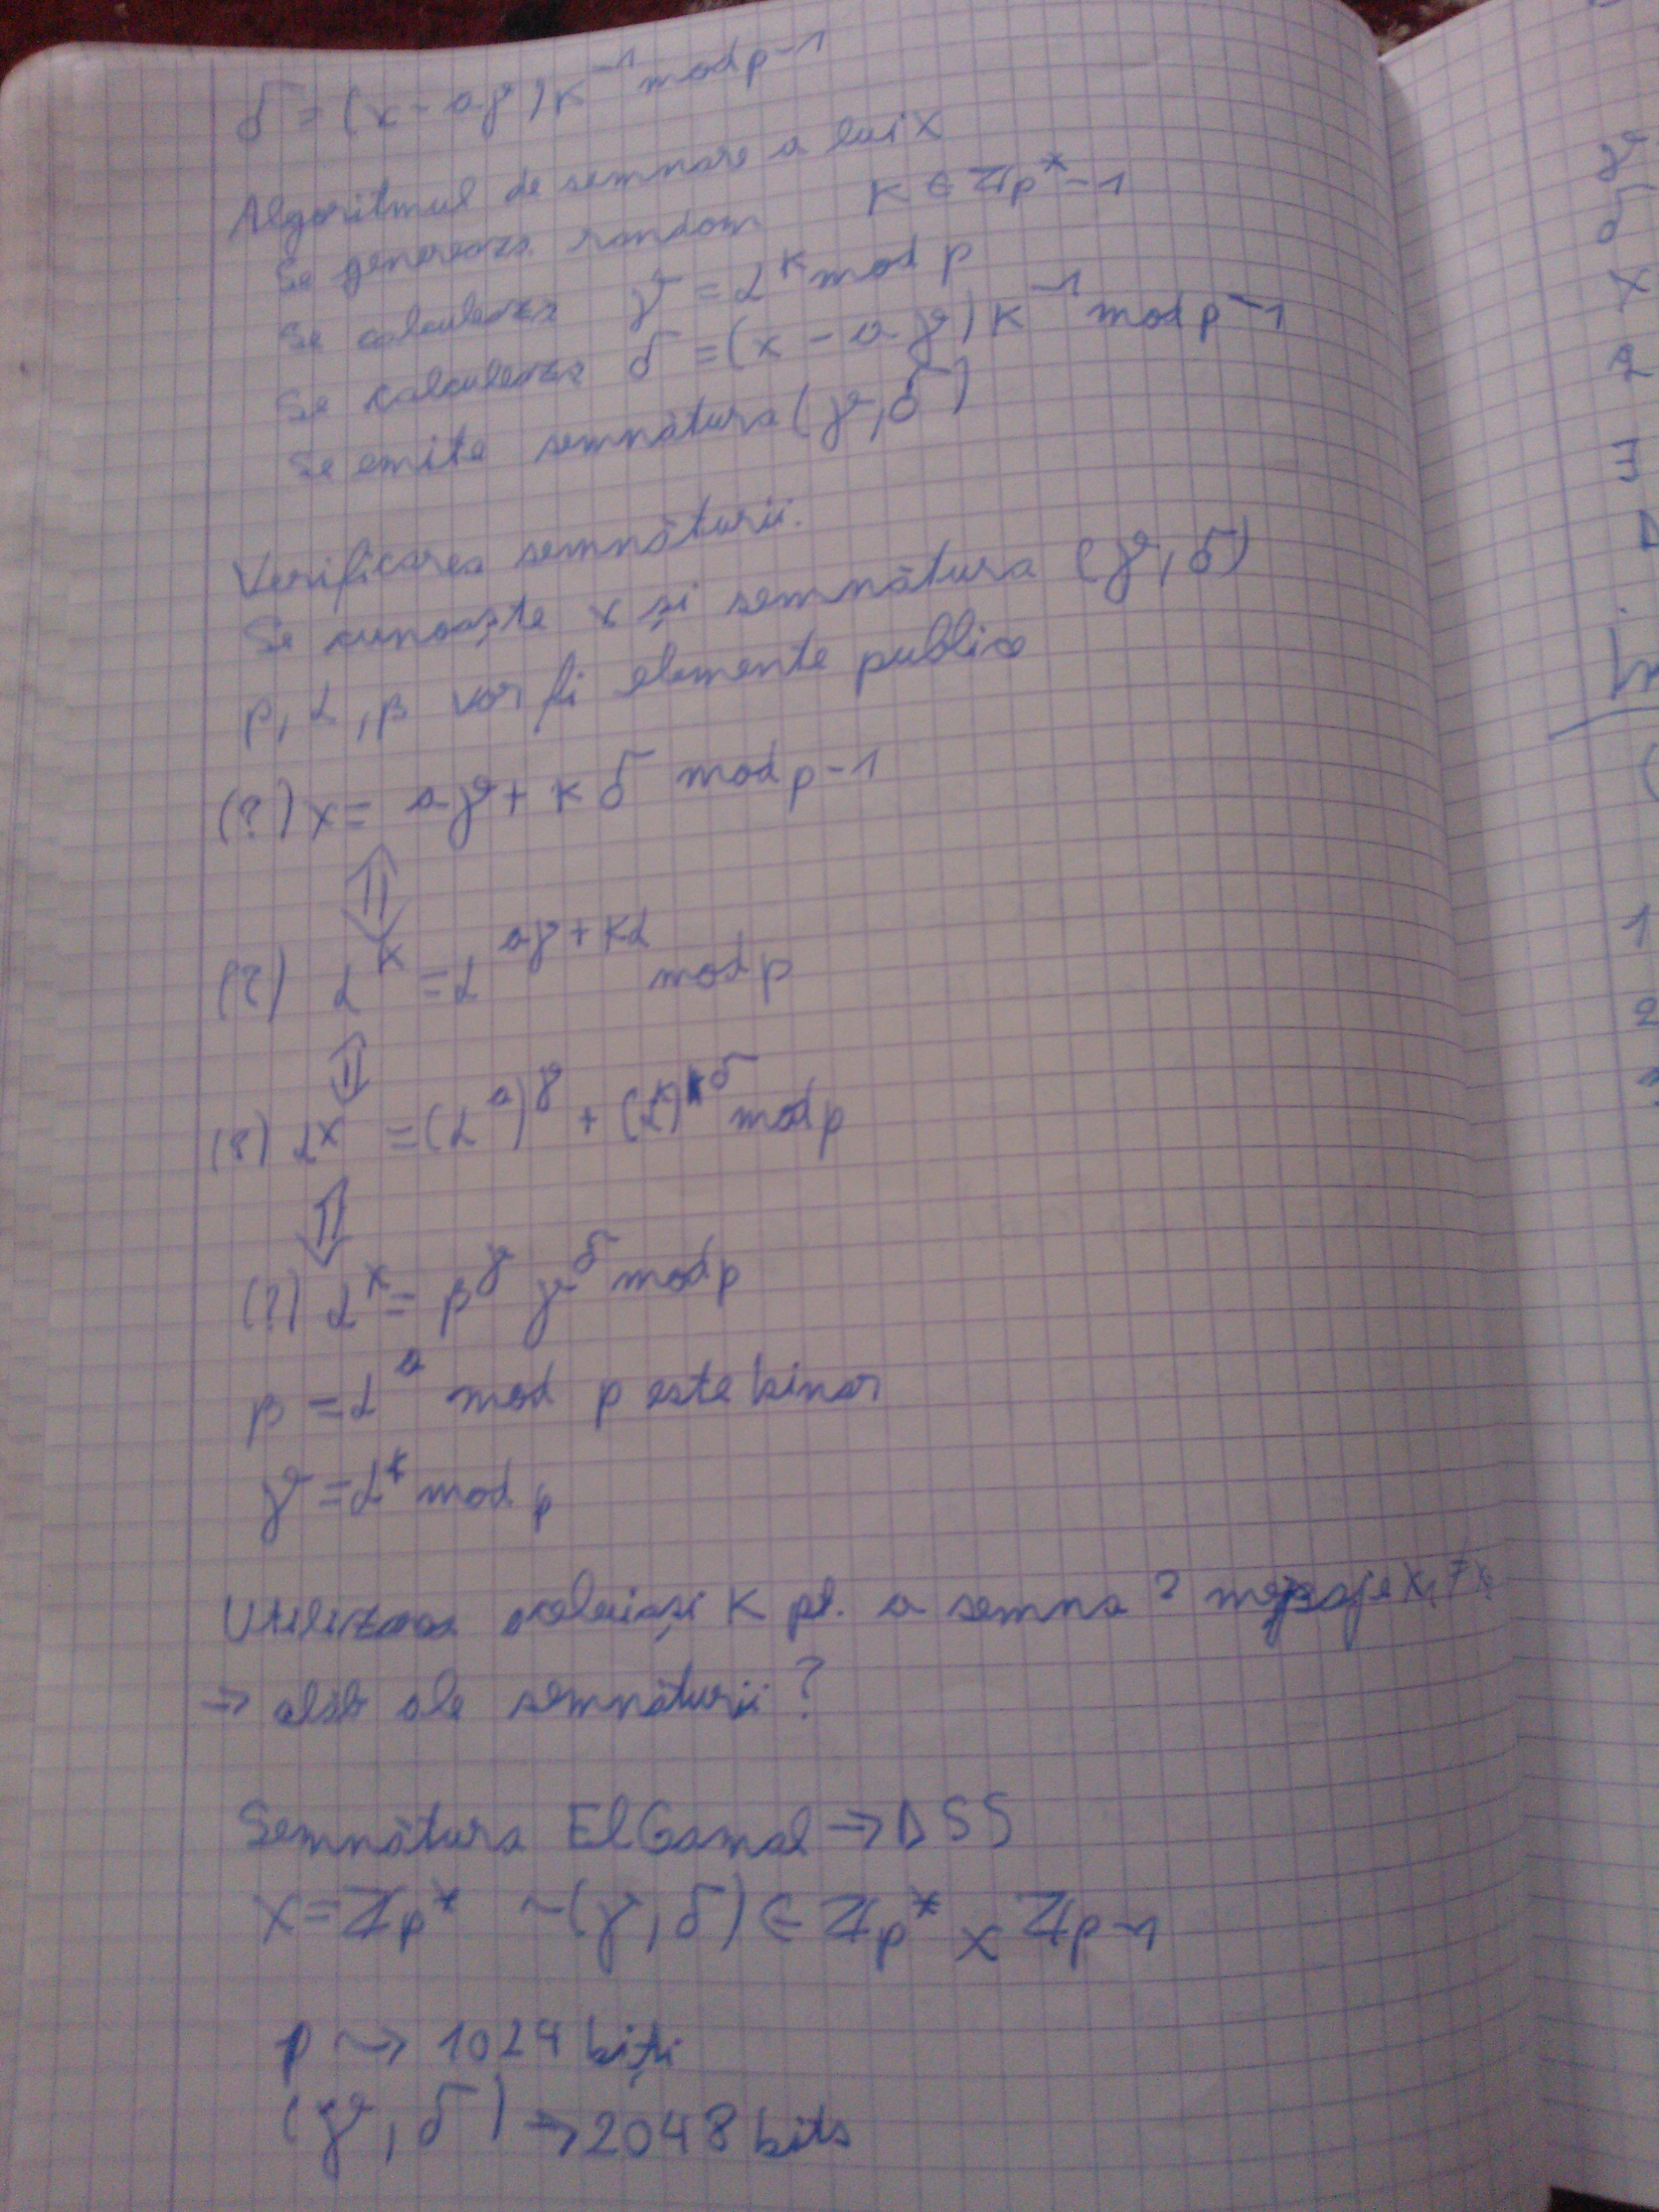 δ = (x - aγ)k⁻¹ mod p-1
Algoritmul de semnare a lui x
Se genereaza random k ∈ ℤp*-1
Se calculeaza γ = α^k mod p
Se calculeaza δ = (x - aγ)k⁻¹ mod p-1
Se emite semnătura (γ, δ)
Verificarea semnăturii.
Se cunoaște x și semnătura (γ, δ)
p, α, β vor fi elemente publice
(?) x = aγ + kδ mod p-1
⇕
(?) α^k = α^(aγ + kα) mod p
⇕
(?) α^x = (α^a)^γ + (α^k)^δ mod p
⇕
(?) α^x = β^γ γ^δ mod p
β = α^a mod p este binar
γ = α^k mod p
Utilizarea aceluiași k pt. a semna 2 mesaje x₁ ≠ x₂
⇒ ale semnăturii?
Semnătura ElGamal → DSS
x = ℤp* ~ (γ, δ) ∈ ℤp* × ℤp-1
p ⇝ 1024 biți
(γ, δ) → 2048 bits
γ
δ
x
2
1
2